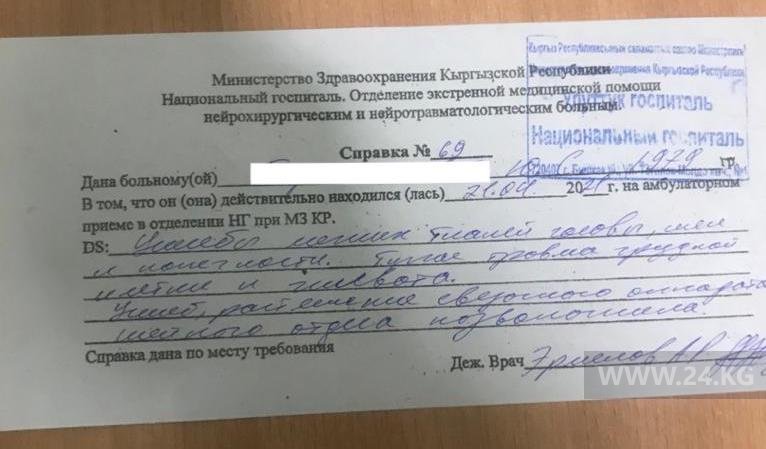 Кыргыз Республикасынын саламаттык сактоо Министрлиги
Министерство здравоохранения Кыргызской Республики
Улуттук госпиталь
Национальный госпиталь
Министерство Здравоохранения Кыргызской Республики
Национальный госпиталь. Отделение экстренной медицинской помощи
нейрохирургическим и нейротравматологическим больным.
Справка № 69
Дана больному(ой) 1979 гр.
В том, что он (она) действительно находился (лась) 21.04. 2021 г. на амбулаторном
приеме в отделении НГ при МЗ КР.
DS: Ушибы мягких тканей головы, шеи
и конечности. Тупая травма грудной
клетки и живота.
Ушиб, растяжение связочного аппарата
шейного отдела позвоночника.
Справка дана по месту требования
Деж. Врач
WWW.24.KG